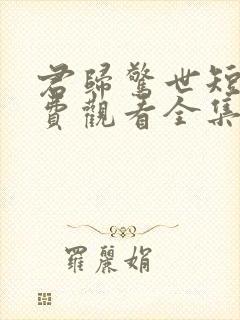 君歸驚世短
費觀看全集
羅麗娟